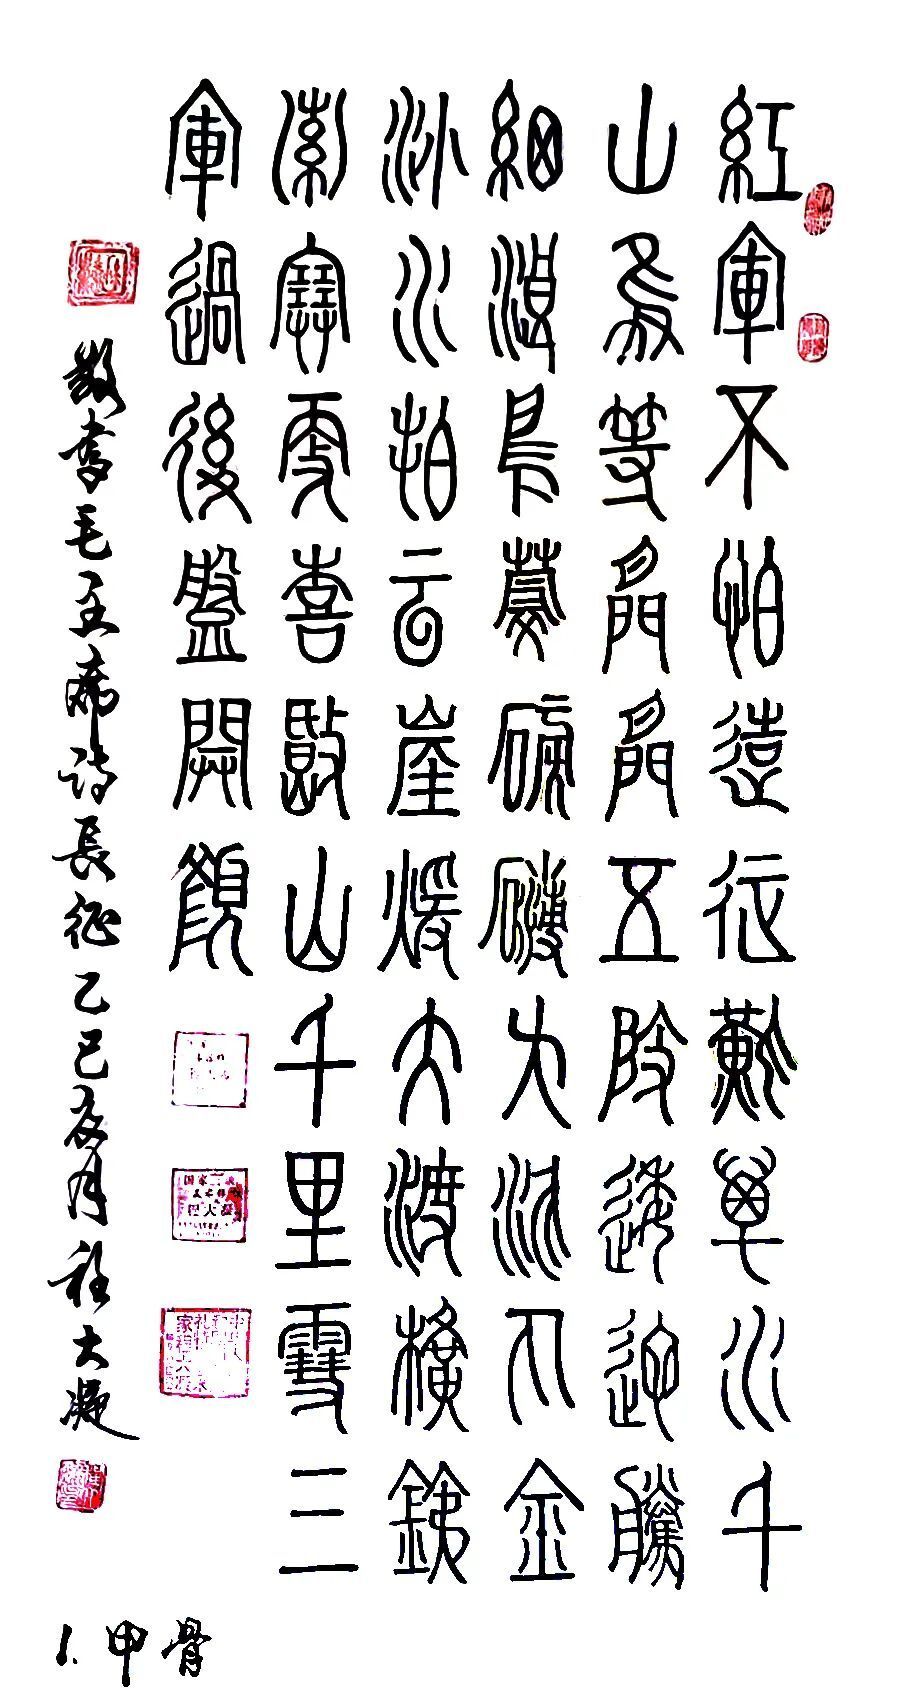 紅軍不怕遠征難萬水千
山等閒閒五陵逶迤騰
細浪烏蒙磅礴泥丸金
沙水拍云崖暖大渡橫鐵
索寒更喜岷山千里雪三
軍過後盤開顏
敬書毛主席詩長征乙巳月程大凝
1.甲骨